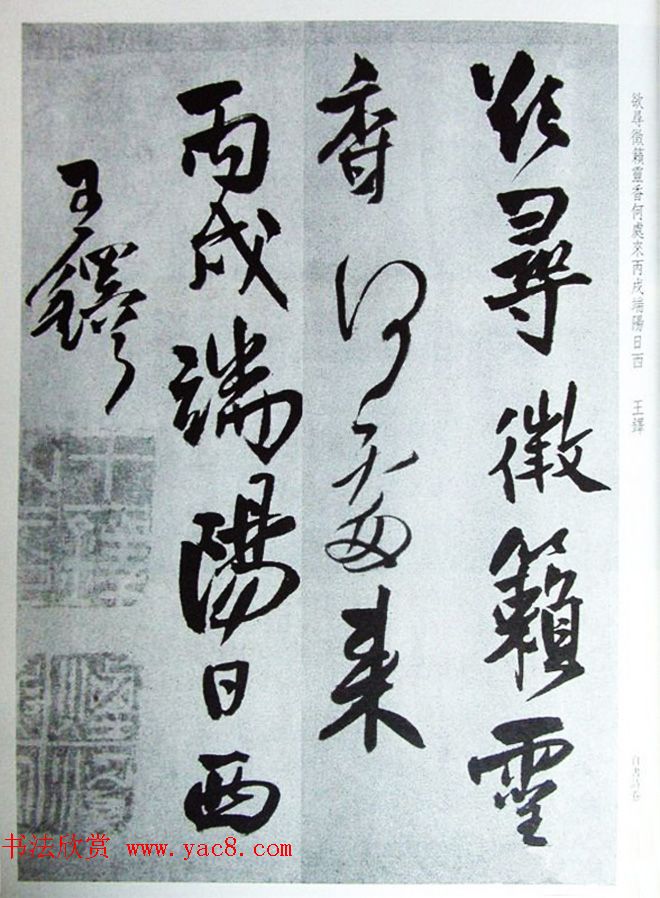 欲尋徵籟靈
香何處來
丙戌端陽日西
王鐸
欲尋徵籟靈香何處來丙戌端陽日西 王鐸
自書詩卷
书法欣赏 www.yac8.com